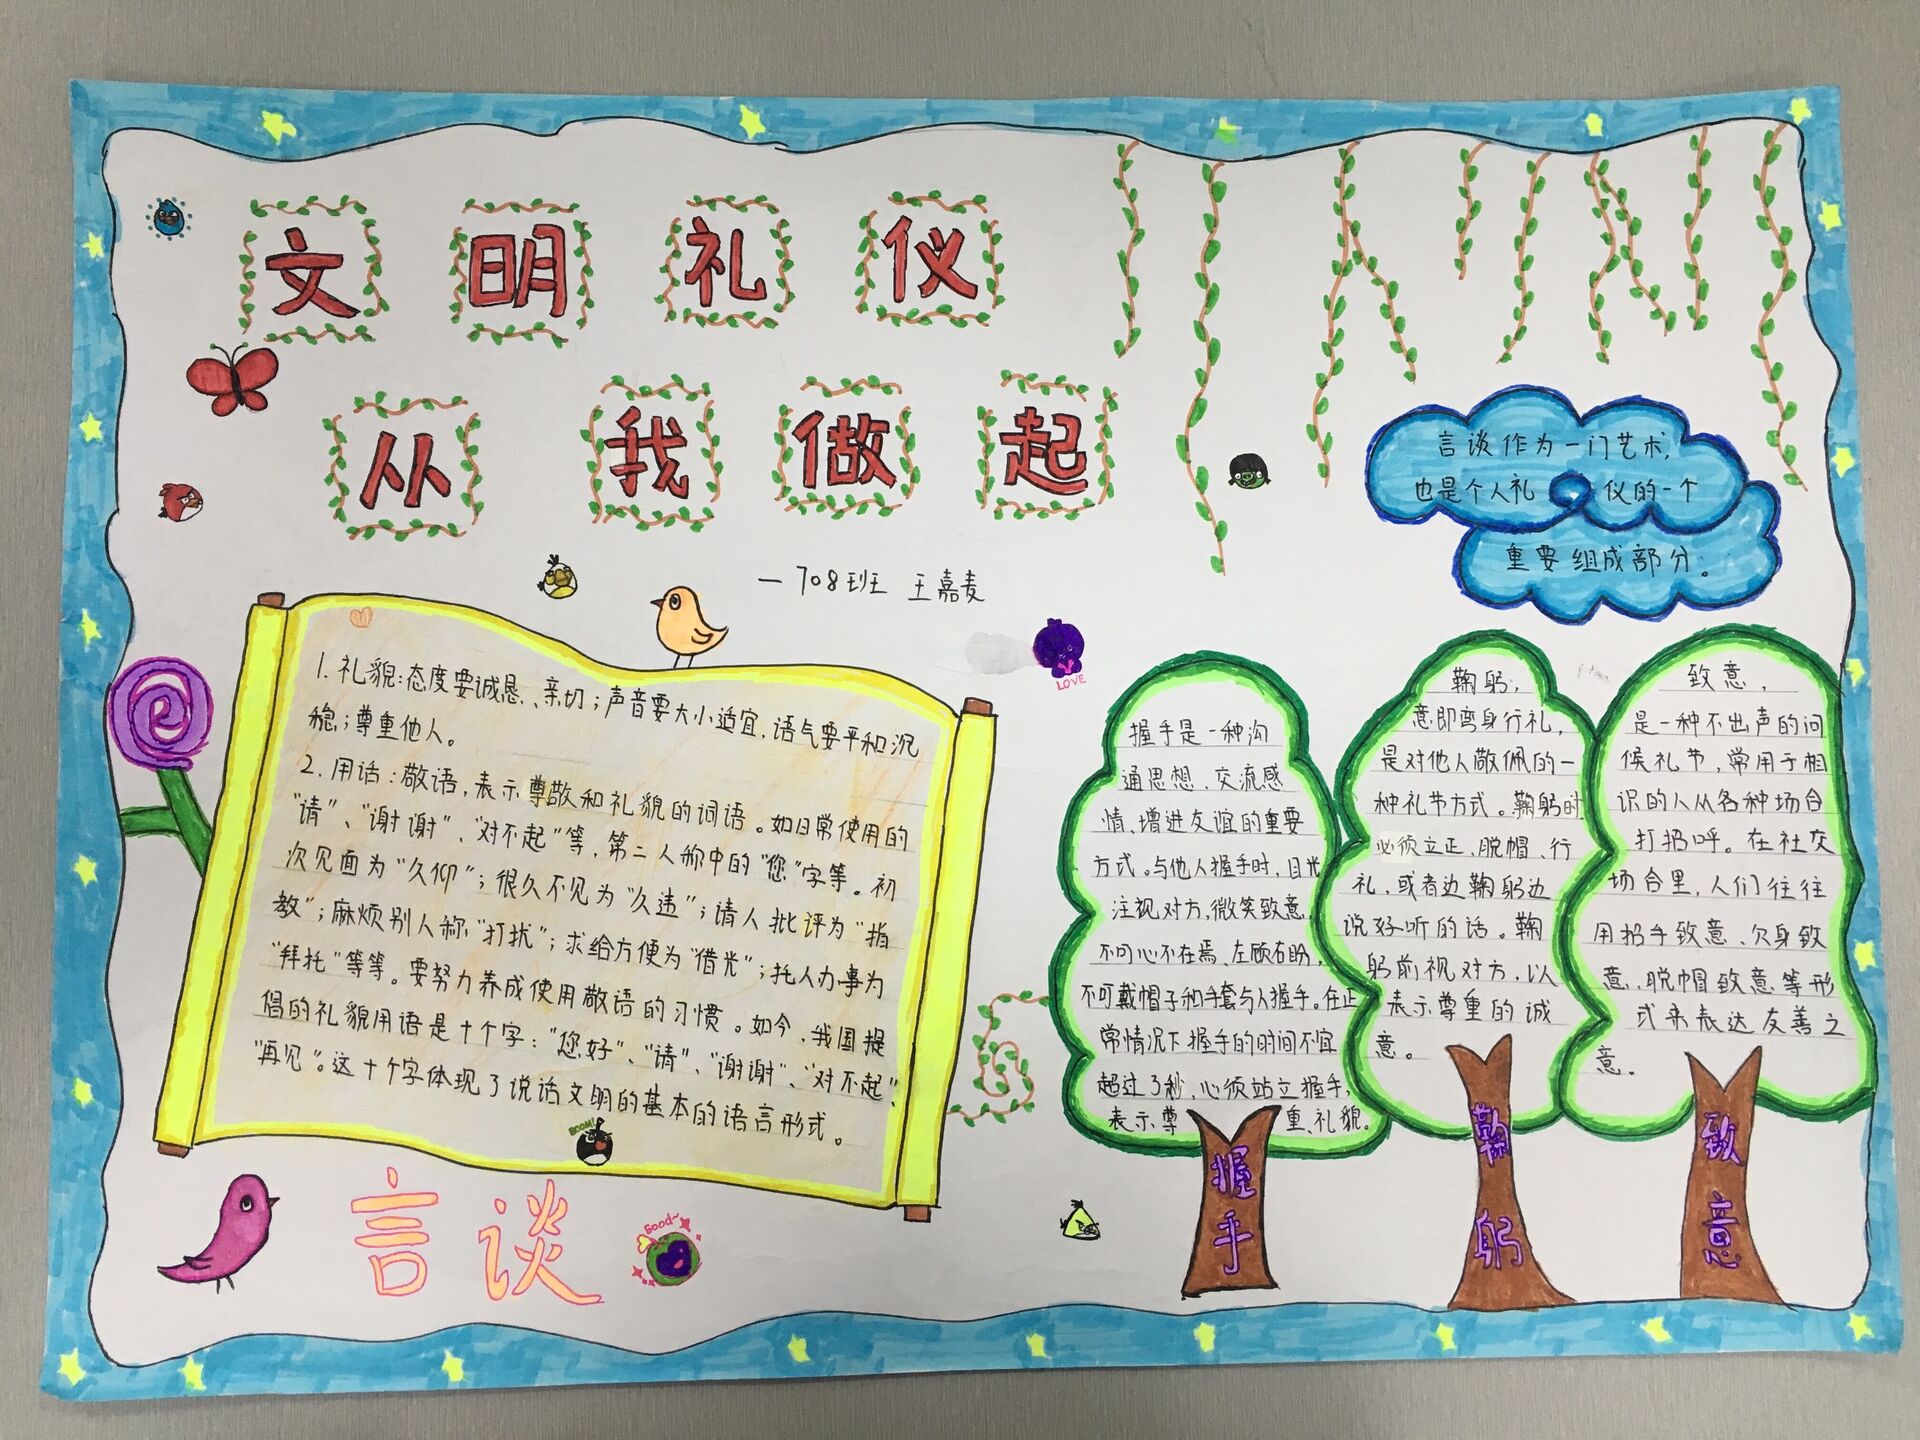 文明礼仪
从我做起
一708班 王嘉麦
言谈作为一门艺术,
也是个人礼仪的一个
重要组成部分。
1.礼貌:态度要诚恳、亲切;声音要大小适宜,语气要平和沉
稳;尊重他人。
2.用话:敬语,表示尊敬和礼貌的词语。如日常使用的
"请"、"谢谢"、"对不起"等,第二人称中的"您"字等。初
次见面为"久仰";很久不见为"久违";请人批评为"指
教";麻烦别人称"打扰";求给方便为"借光";托人办事为
"拜托"等等。要努力养成使用敬语的习惯。如今,我国提
倡的礼貌用语是十个字:"您好"、"请"、"谢谢"、"对不起"、
"再见"。这十个字体现了说话文明的基本的语言形式。
BOOM!
言谈
Good~
LOVE
握手是一种沟
通思想、交流感
情、增进友谊的重要
方式。与他人握手时,目光
注视对方,微笑致意,
不可心不在焉、左顾右盼,
不可戴帽子和手套与人握手。在正
常情况下握手的时间不宜
超过3秒,必须站立握手,
表示尊重、礼貌。
握手
鞠躬,
意即弯身行礼,
是对他人敬佩的一
种礼节方式。鞠躬时
必须立正、脱帽、行
礼,或者边鞠躬边
说好听的话。鞠
躬前视对方,以
表示尊重的诚
意。
鞠躬
致意,
是一种不出声的问
候礼节,常用于相
识的人从各种场合
打招呼。在社交
场合里,人们往往
用招手致意、欠身致
意、脱帽致意等形
式来表达友善之
意。
致意